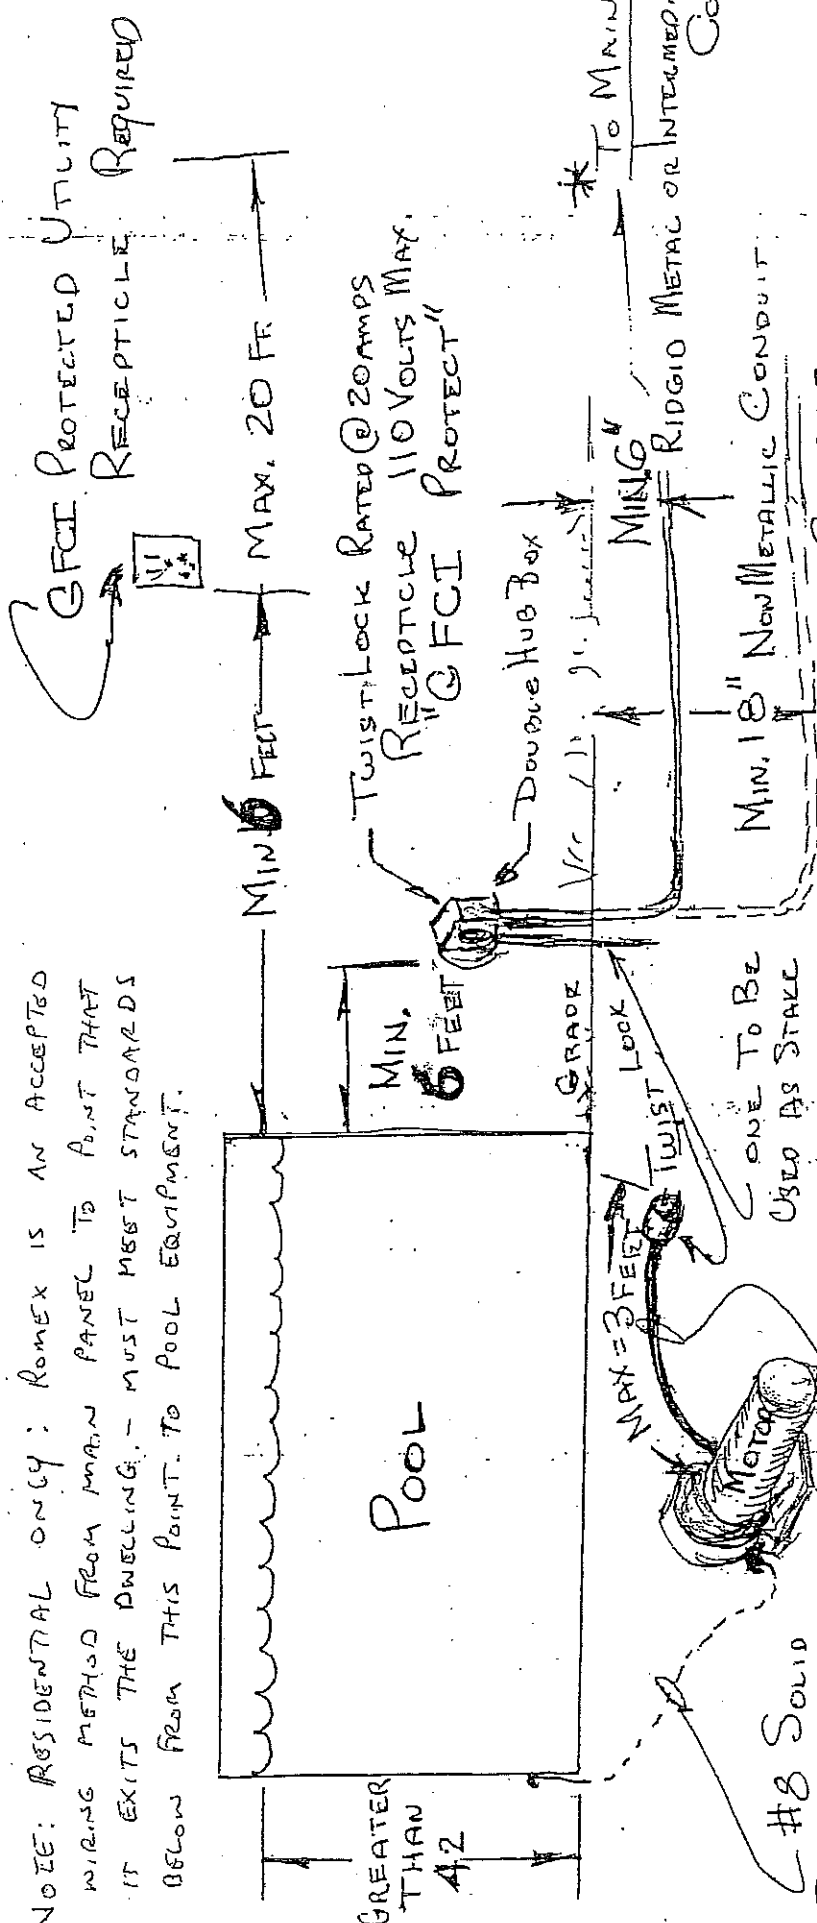 NOTE: RESIDENTIAL ONLY: ROMEX IS AN ACCEPTED
WIRING METHOD FROM MAIN PANEL TO POINT THAT
IT EXITS THE DWELLING. - MUST MEET STANDARDS
BELOW FROM THIS POINT. TO POOL EQUIPMENT.
GFCI PROTECTED UTILITY
RECEPTICLE REQUIRED
MIN. 6 FEET
MAX. 20 FT.
TWIST LOCK RATED @ 20 AMPS
RECEPTICLE 110 VOLTS MAX.
"GFCI PROTECT"
DOUBLE HUB BOX
MIN.
6 FEET
GREATER
THAN
42
POOL
GRADE
MIN 6"
* TO MAIN
RIDGID METAL OR
MIN. 18" NON METALLIC CONDUIT
MAX = 3 FEET
TWIST LOCK
ONE TO BE
USED AS STAKE
MOTOR
#8 SOLID